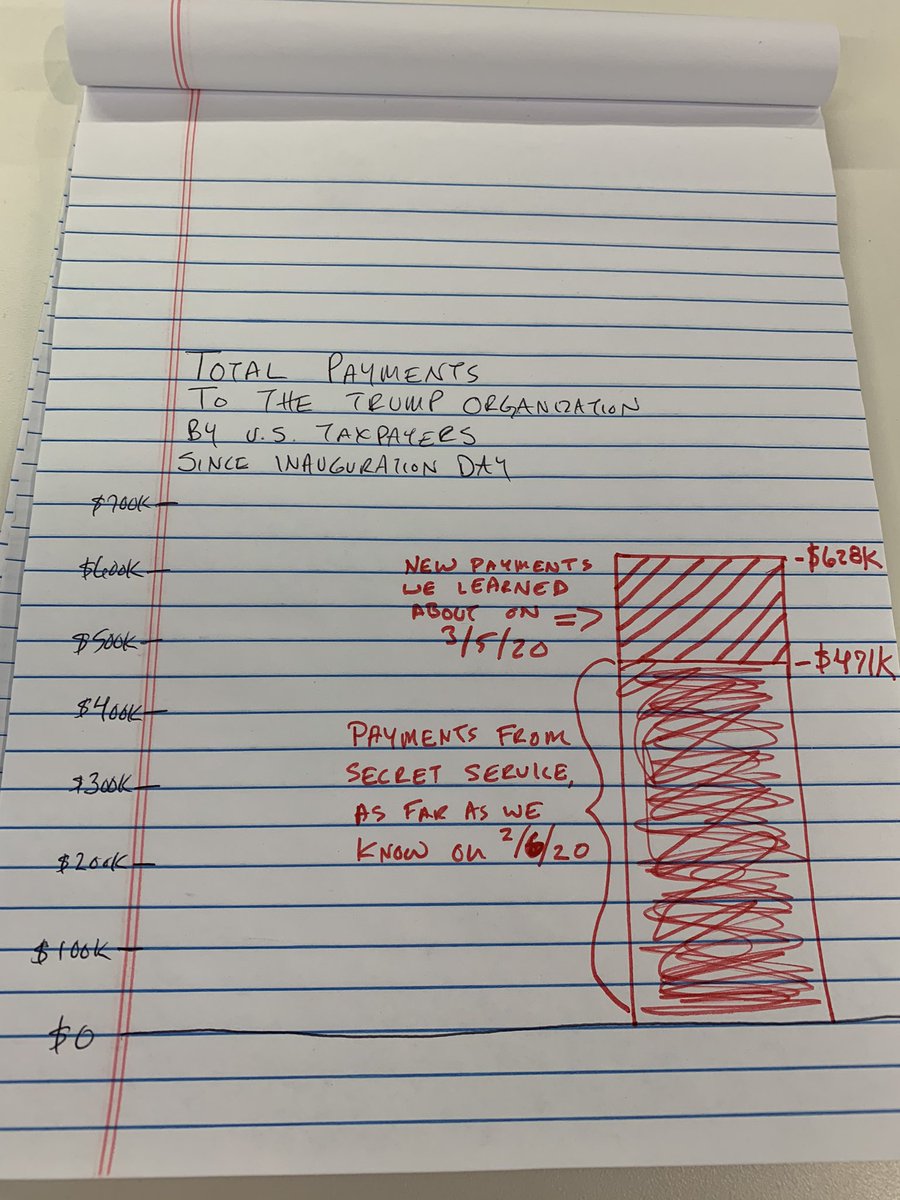 TOTAL PAYMENTS
TO THE TRUMP ORGANIZATION
BY U.S. TAXPAYERS
SINCE INAUGURATION DAY
$700K
$600K
$500K
$400K
$300K
$200K
$100K
$0
NEW PAYMENTS
WE LEARNED
ABOUT ON =>
3/5/20
-$628K
-$471K
PAYMENTS FROM
SECRET SERVICE,
AS FAR AS WE
KNOW ON 2/6/20